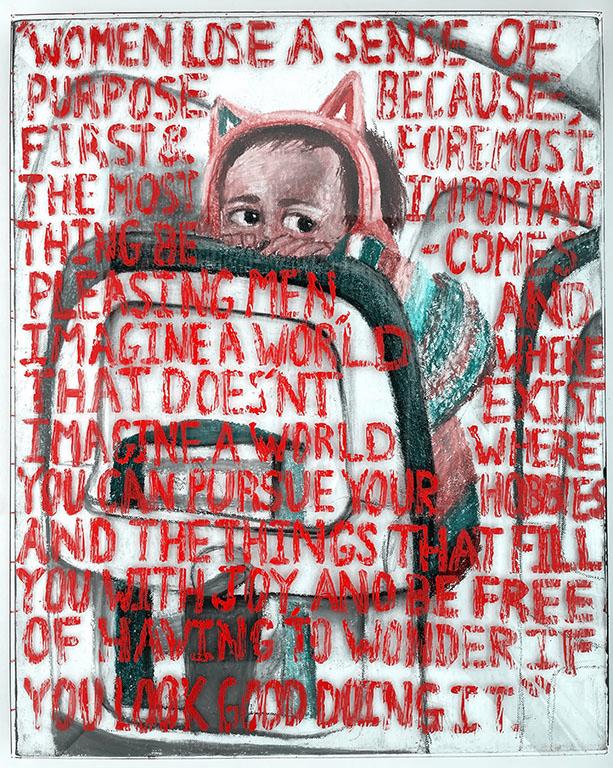 "WOMEN LOSE A SENSE OF
PURPOSE BECAUSE,
FIRST & FOREMOST,
THE MOST IMPORTANT
THING BE -COMES
PLEASING MEN, AND
IMAGINE A WORLD WHERE
THAT DOES'NT EXIST.
IMAGINE A WORLD WHERE
YOU CAN PURSUE YOUR HOBBIES
AND THE THINGS THAT FILL
YOU WITH JOY, AND BE FREE
OF HAVING TO WONDER IF
YOU LOOK GOOD DOING IT."